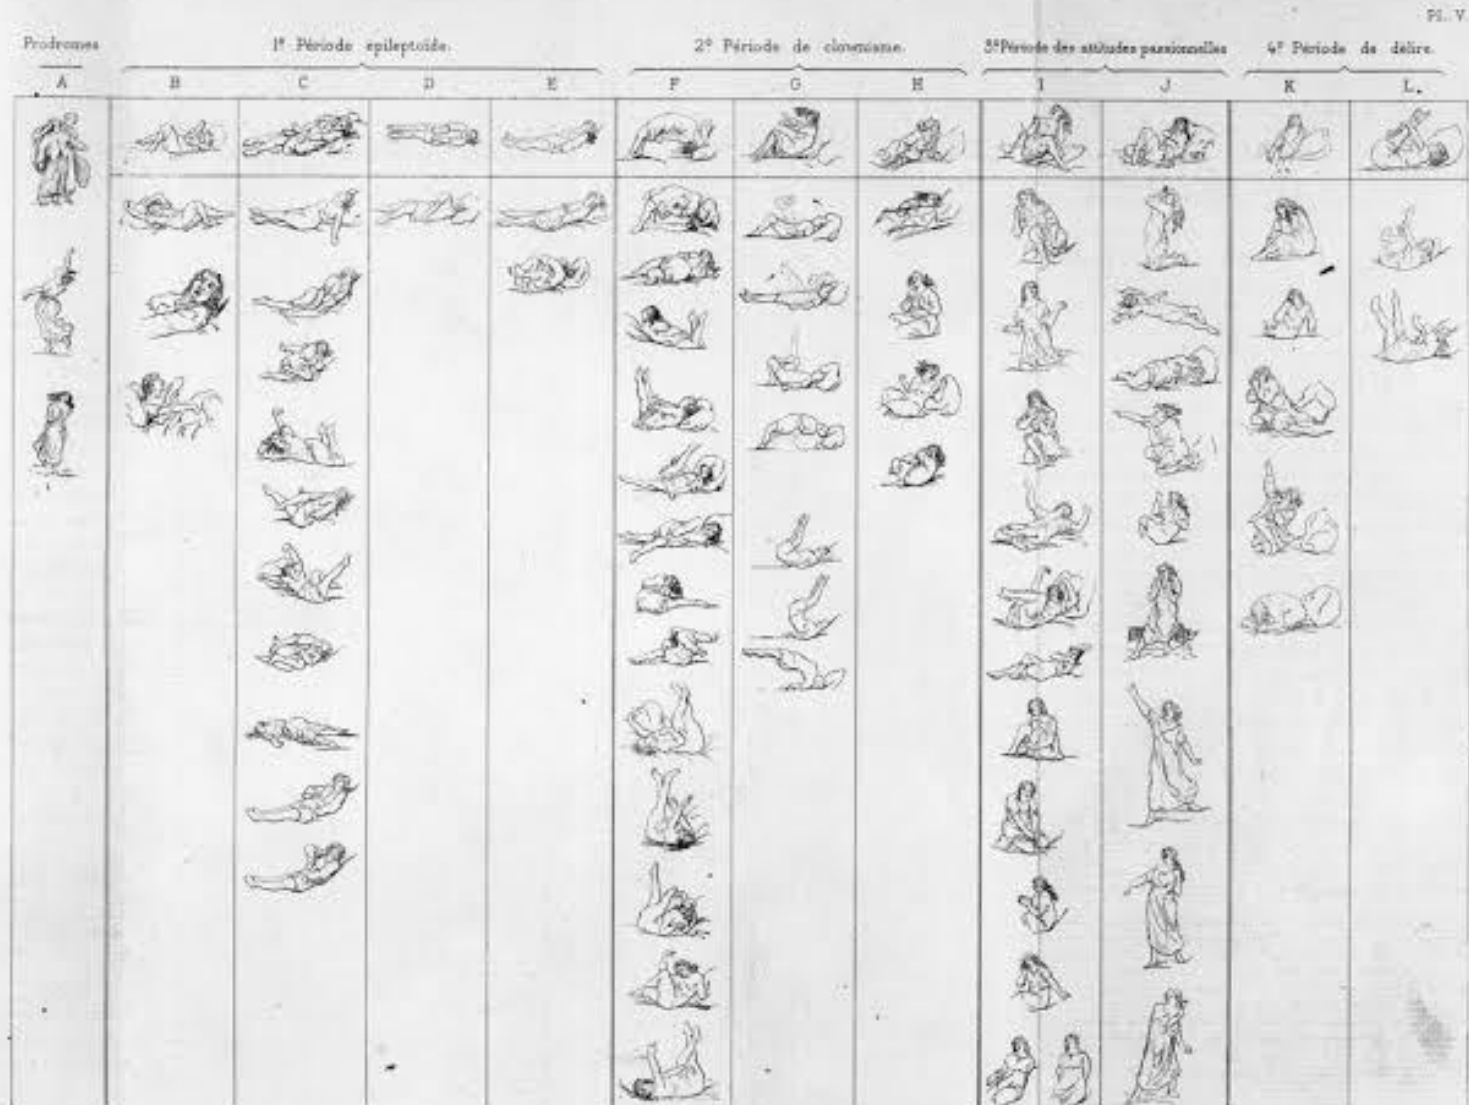 Pl. V
Prodromes
1º Période épileptoïde.
2º Période de clownisme.
3º Période des attitudes passionnelles
4º Période de délire.
A B C D E F G H I J K L.